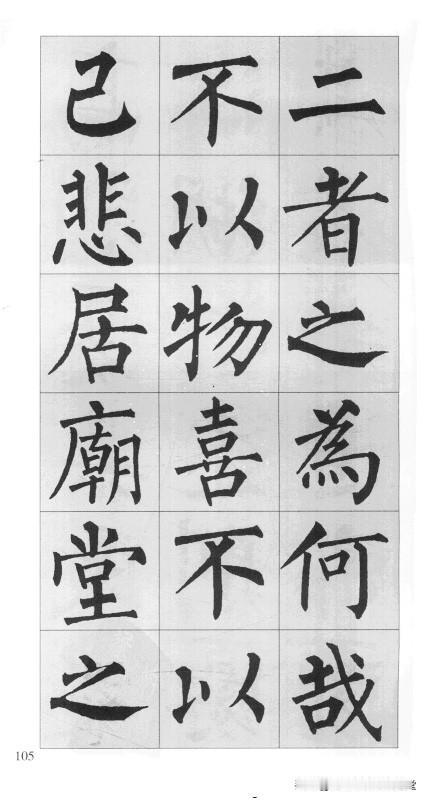 二者之為何哉
不以物喜不以
己悲居廟堂之
105